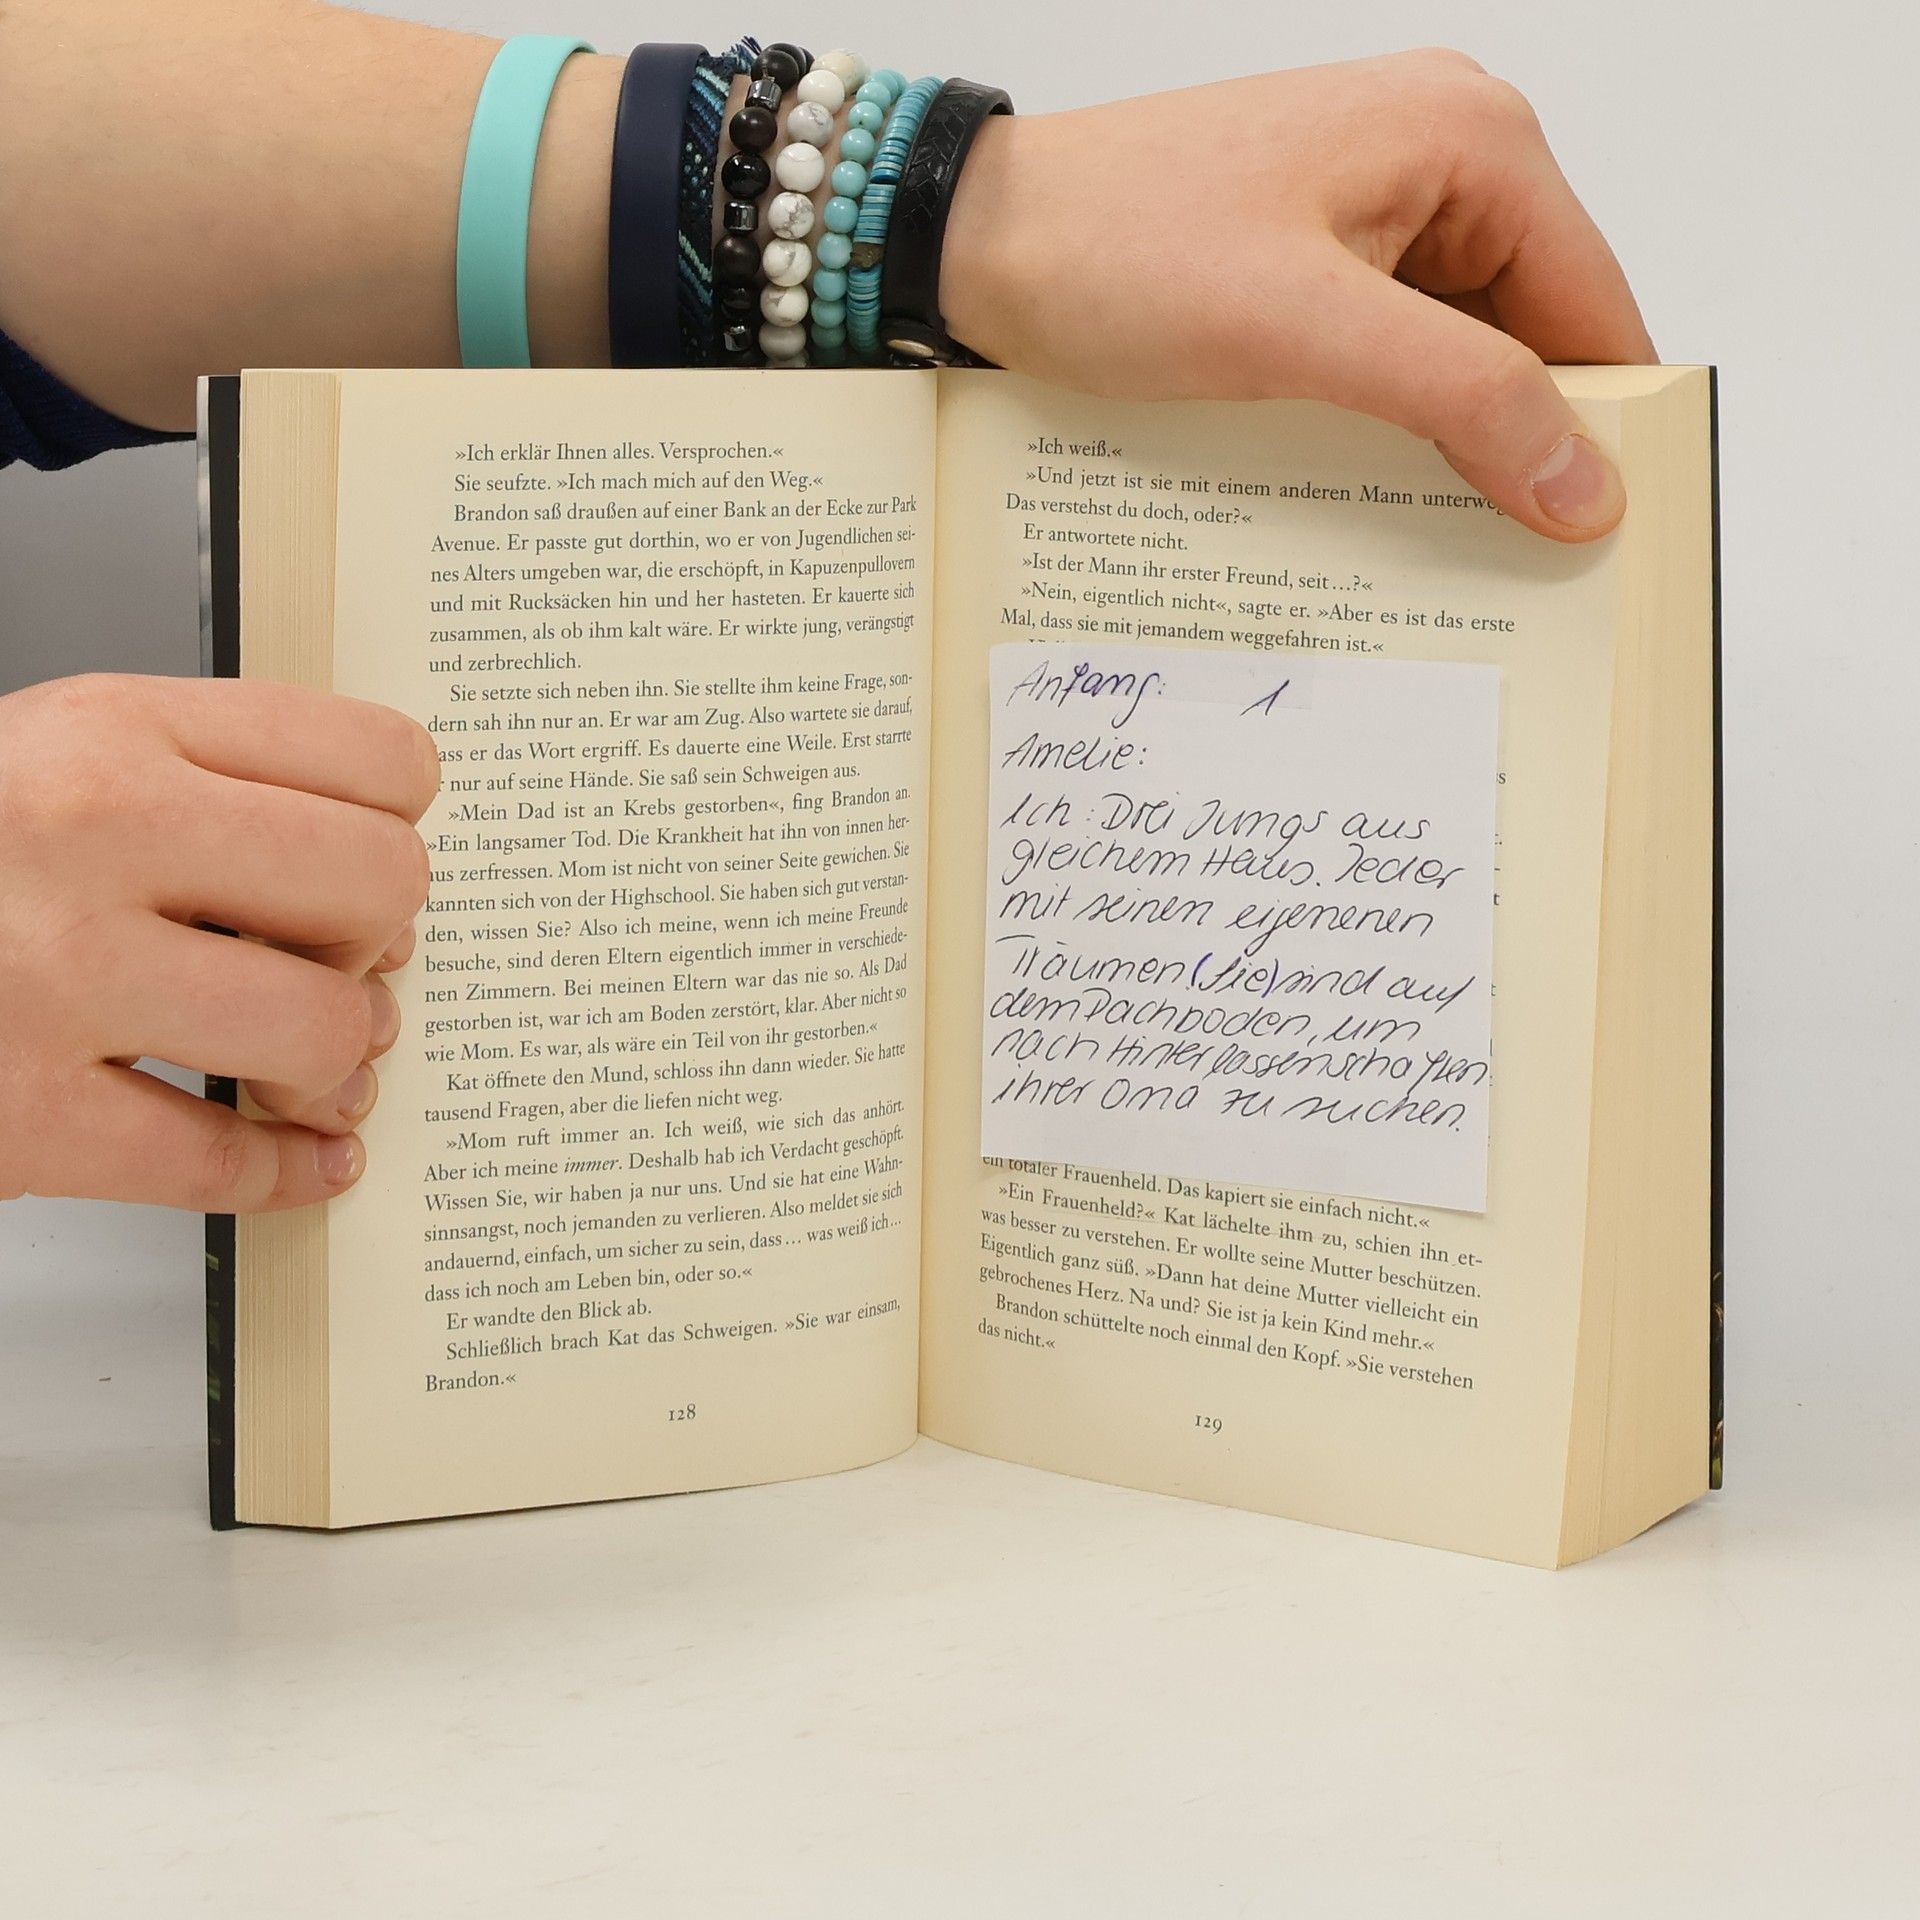 »Ich erklär Ihnen alles. Versprochen.«
Sie seufzte. »Ich mach mich auf den Weg.«
Brandon saß draußen auf einer Bank an der Ecke zur Park
Avenue. Er passte gut dorthin, wo er von Jugendlichen sei-
nes Alters umgeben war, die erschöpft, in Kapuzenpullovern
und mit Rucksäcken hin und her hasteten. Er kauerte sich
zusammen, als ob ihm kalt wäre. Er wirkte jung, verängstigt
und zerbrechlich.
Sie setzte sich neben ihn. Sie stellte ihm keine Frage, son-
dern sah ihn nur an. Er war am Zug. Also wartete sie darauf,
ass er das Wort ergriff. Es dauerte eine Weile. Erst starrte
r nur auf seine Hände. Sie saß sein Schweigen aus.
»Mein Dad ist an Krebs gestorben«, fing Brandon an.
»Ein langsamer Tod. Die Krankheit hat ihn von innen her-
aus zerfressen. Mom ist nicht von seiner Seite gewichen. Sie
kannten sich von der Highschool. Sie haben sich gut verstan-
den, wissen Sie? Also ich meine, wenn ich meine Freunde
besuche, sind deren Eltern eigentlich immer in verschiede-
nen Zimmern. Bei meinen Eltern war das nie so. Als Dad
gestorben ist, war ich am Boden zerstört, klar. Aber nicht so
wie Mom. Es war, als wäre ein Teil von ihr gestorben.«
Kat öffnete den Mund, schloss ihn dann wieder. Sie hatte
tausend Fragen, aber die liefen nicht weg.
»Mom ruft immer an. Ich weiß, wie sich das anhört.
Aber ich meine immer. Deshalb hab ich Verdacht geschöpft.
Wissen Sie, wir haben ja nur uns. Und sie hat eine Wahn-
sinnsangst, noch jemanden zu verlieren. Also meldet sie sich
andauernd, einfach, um sicher zu sein, dass … was weiß ich …
dass ich noch am Leben bin, oder so.«
Er wandte den Blick ab.
Schließlich brach Kat das Schweigen. »Sie war einsam,
Brandon.«
128
»Ich weiß.«
»Und jetzt ist sie mit einem anderen Mann unterweg
Das verstehst du doch, oder?«
Er antwortete nicht.
»Ist der Mann ihr erster Freund, seit …?«
»Nein, eigentlich nicht«, sagte er. »Aber es ist das erste
Mal, dass sie mit jemandem weggefahren ist.«
Anfang: 1
Amelie:
Ich: Drei Jungs aus
gleichem Haus. Jeder
mit seinen eigenenen
Träumen (Sie) sind auf
dem Dachboden, um
nach Hinterlassenschaften
ihrer Oma zu suchen.
ein totaler Frauenheld. Das kapiert sie einfach nicht.«
»Ein Frauenheld?« Kat lächelte ihm zu, schien ihn et-
was besser zu verstehen. Er wollte seine Mutter beschützen.
Eigentlich ganz süß. »Dann hat deine Mutter vielleicht ein
gebrochenes Herz. Na und? Sie ist ja kein Kind mehr.«
Brandon schüttelte noch einmal den Kopf. »Sie verstehen
das nicht.«
129